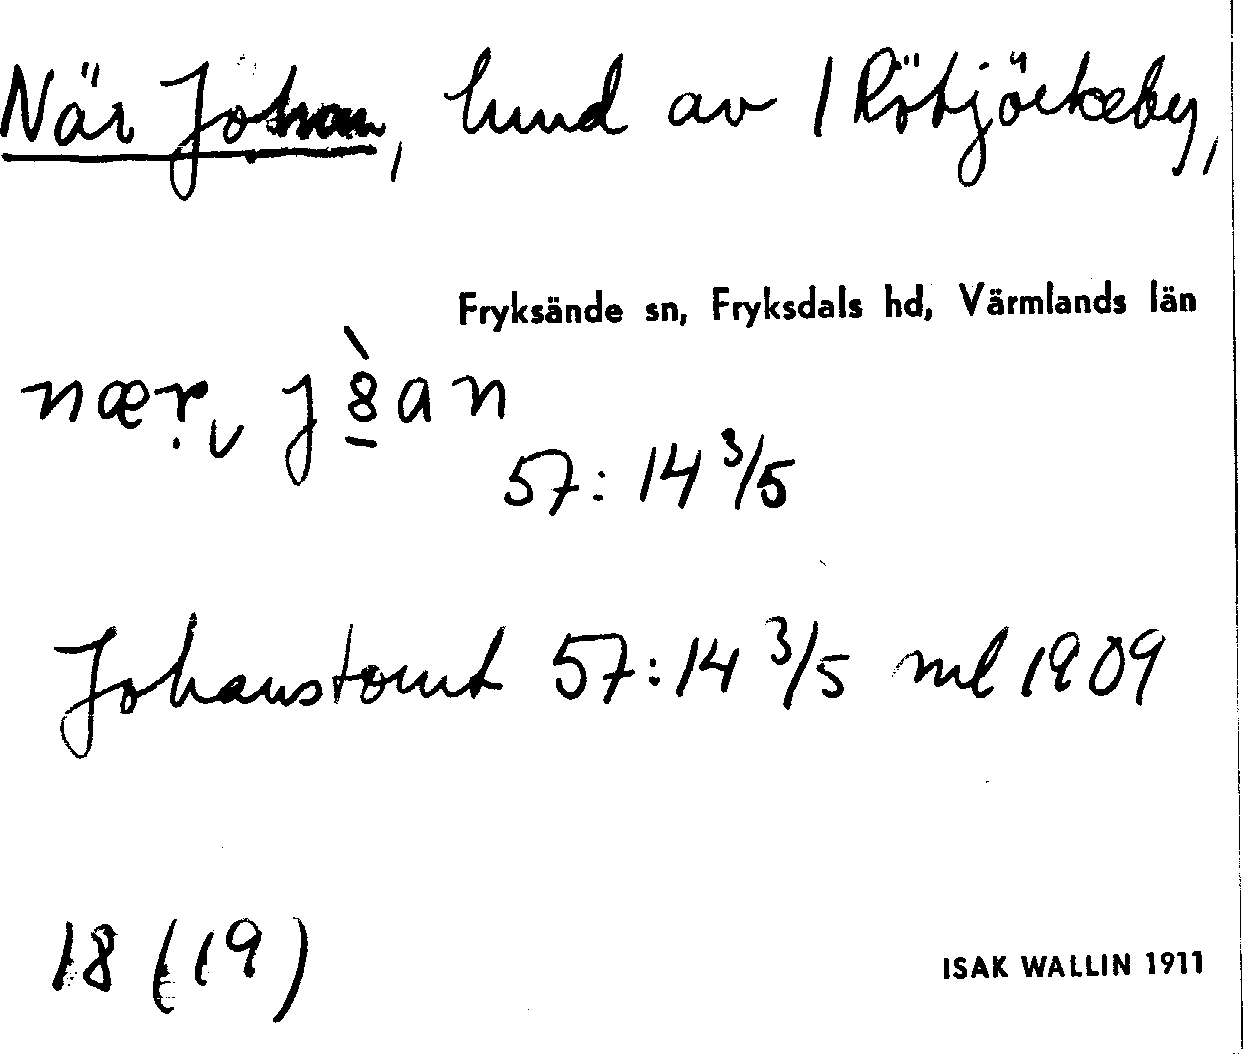 När Johan, hmd av 1 Röbjörkeby,
Fryksände sn, Fryksdals hd, Värmlands län
nær. j8̱̀an
57:14 3/5
Johanstomt 57:14 3/5 ml 1909
18 (19)
ISAK WALLIN 1911